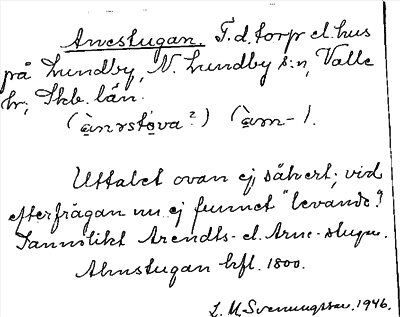 Arnestugan. F.d. torp el. hus
på Lundby, N. Lundby s:n, Valle
hr, Skb. län.
(ànrstòva?) (àrn-).
Uttalet ovan ej säkert; vid
efterfrågan nu ej funnet "levande".
Sannolikt Arendts- el. Arne-stugan.
Almstugan bfl. 1800.
L. M. Svenungsson. 1946.